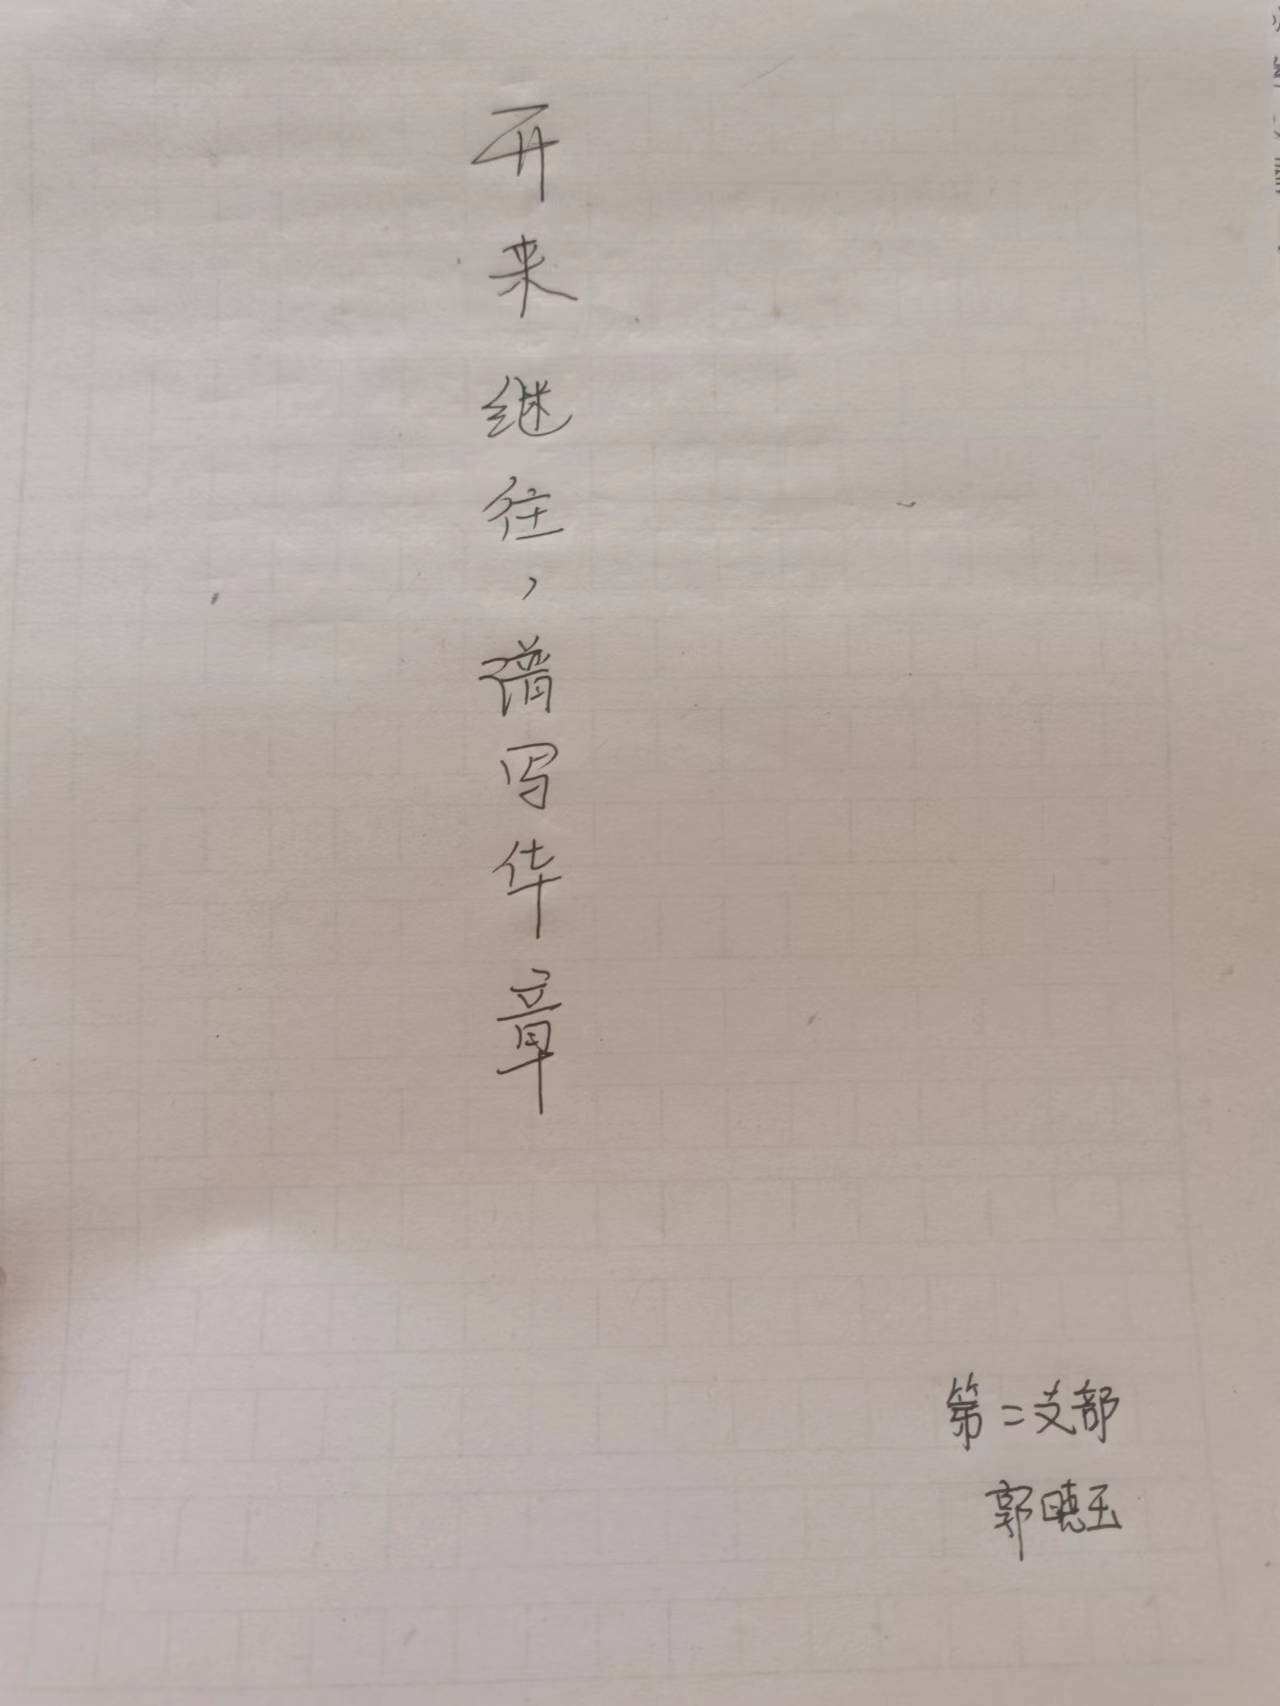 开来继往，谱写华章
第二支部
郭晓玉